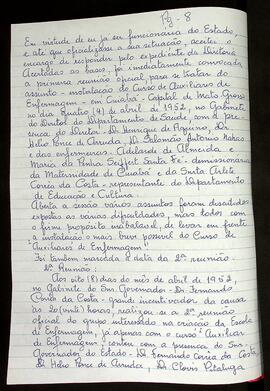 Pg - 8
Em virtude de eu já ser funcionária do Estado,
e até que oficializasse a sua situação, aceitei o
encargo de responder pelo expediente da Diretoria
Acertadas as bases, foi imediatamente convocada
a primeira reunião oficial para se tratar do
assunto - instalação do Curso de Auxiliares de
Enfermagem - em Cuiabá - Capital de Mato Grosso
no dia quatro (4) de abril de 1952, no Gabinete
do Diretor do Departamento de Saúde, com a pre-
sença do Diretor Dr Henrique de Aquino, Dr
Hélio Ponce de Arruda, Dr Salomão Antonio
e das enfermeiras: Adelaide de Almeida e
Maria de Pinho Seiffert Santa Fé - demissionaria
da Maternidade de Cuiabá e da Snrta. Arlete
Corrêa da Costa - representante do Departamento
de Educação e Cultura.
Aberta a sessão vários assuntos foram discutidos
expostas as várias dificuldades, mas todos com
o firme propósito inabalavel, de levar em frente
a instalação o mais breve possivel do Curso de
"Auxiliares de Enfermagem"!
Foi tambem marcada a data da 2ª reunião.
2ª Reunião:
Aos oito (8) dias do mês de abril de 1952,
no Gabinete do Snr Governador - Dr Fernando
Corrêa da Costa - grande incentivador da causa
às 20 (vinte) horas, realizou-se a 2ª reunião
oficial do grupo interessado na criação da Escola
de Enfermagem já apenas com o curso: "Auxiliar
de Enfermagem" contou com a presença do Snr
Governador do Estado - Dr Fernando Corrêa da Costa,
Dr Hélio Ponce de Arruda, Dr Clovis Pitaluga